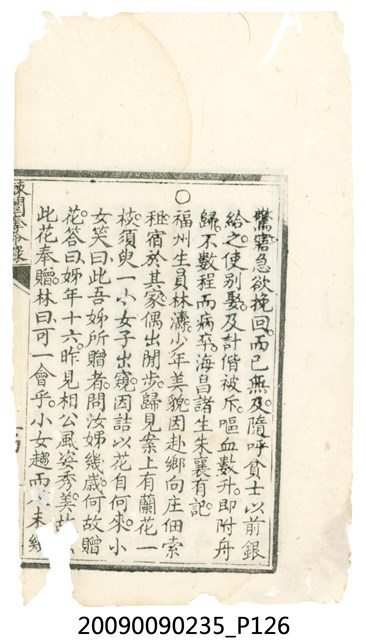 驚寤急欲挽回而已無及隨呼貧士以前銀
給之使別娶及計偕被斥嘔血數升即附舟
歸不數程而病卒海昌諸生朱襄有記
○
福州生員林濤少年美貌因赴鄉向庄佃索
租宿於其家偶出閒步歸見案上有蘭花一
枝須臾一小女子出窺因詰以花自何來小
女笑曰此吾姊所贈者問汝姊幾歲何故贈
花答曰姊年十六昨見相公風姿秀美
此花奉贈林曰可一會乎小女趨而
未幾
闈奇錄
20090090235_P126